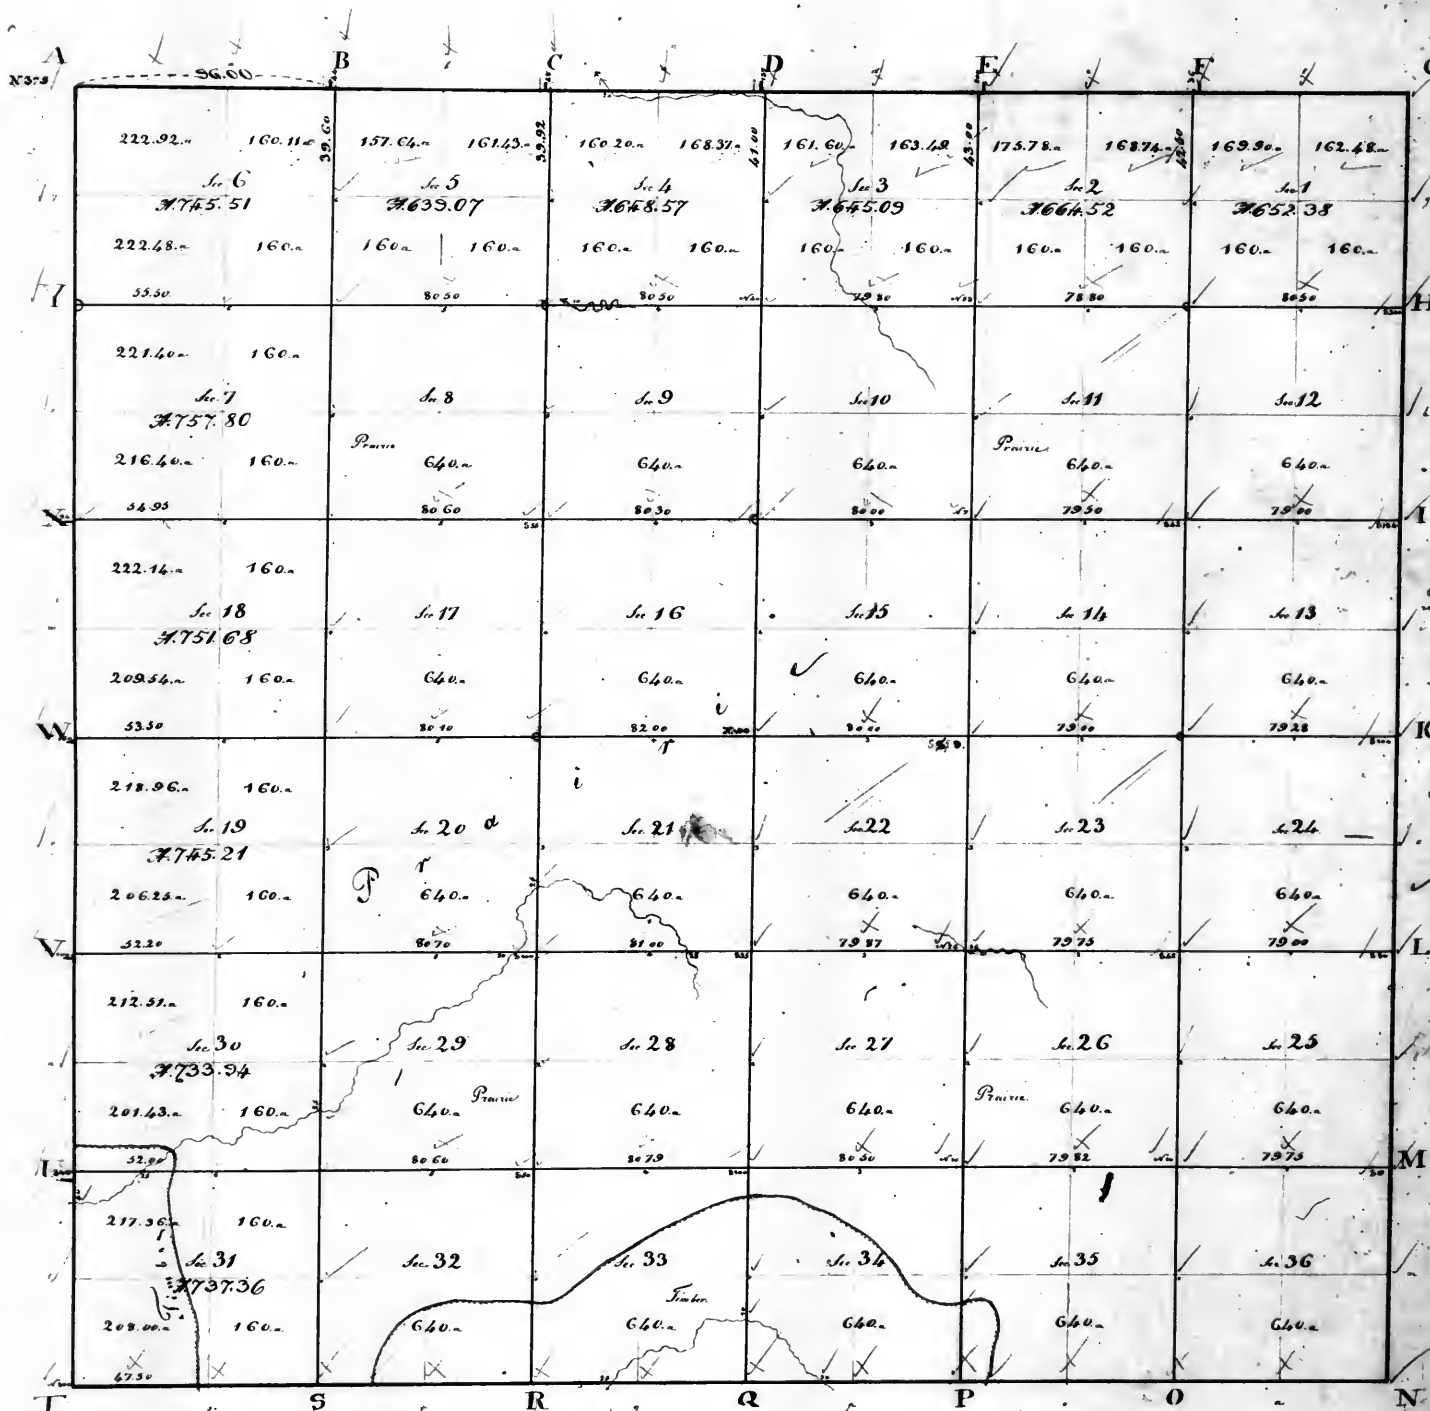 A B C D E F
96.00
39.60 39.92 41.00 43.00
222.92.a 160.11a 157.64.a 161.43.a 160.20.a 168.37.a 161.60.a 163.49 175.78.a 168.74.a 169.90.a 162.48.a
Sec 6 Sec 5 Sec 4 Sec 3 Sec 2 Sec 1
A.745.51 A.639.07 A.648.57 A.645.09 A.664.52 A.652.38
222.48.a 160.a 160a 160.a 160.a 160.a 160.a 160.a 160.a 160.a 160.a 160.a
55.50 80 50 80 50 79 80 78 80 80 50
H
221.40.a 160.a
Sec 7 Sec 8 Sec 9 Sec 10 Sec 11 Sec 12
A.757.80
Prairie Prairie
216.40.a 160.a 640.a 640.a 640.a 640.a 640.a
54.95 80 60 80 30 80 00 79 50 79 00
X I
222.14.a 160.a
Sec 18 Sec 17 Sec 16 Sec 15 Sec 14 Sec 13
A.751.68
209.54.a 160.a 640.a 640.a 640.a 640.a 640.a
53.50 80 10 82 00 80 00 79 00 79 28
W K
218.96.a 160.a
Sec 19 Sec 20 Sec 21 Sec 22 Sec 23 Sec 24
A.745.21
Prairi
206.25.a 160.a 640.a 640.a 640.a 640.a 640a
52.20 80 70 81 00 79 87 79 75 79 00
V L
212.51.a 160.a
Sec 30 Sec 29 Sec 28 Sec 27 Sec 26 Sec 25
A.733.94
Prairie Prairie
201.43.a 160.a 640.a 640.a 640.a 640.a 640.a
52.00 80 60 80 79 80 50 79 82 79 75
M
217.36.a 160.a
Sec 31 Sec 32 Sec 33 Sec 34 Sec 35 Sec 36
A.737.36
Timber Timber
208.00.a 160.a 640.a 640.a 640.a 640.a 640.a
47.50
T S R Q P O N